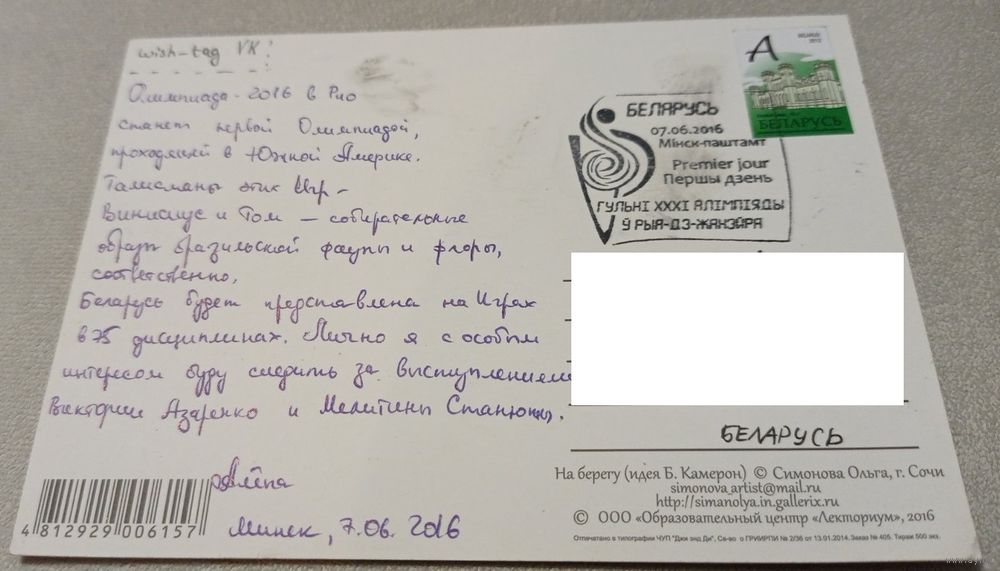 wish-tag VK!
Олимпиада-2016 в Рио
станет первой Олимпиадой,
проходящей в Южной Америке.
Талисманы этих Игр -
Винисиус и Том - собирательные
образы бразильской фауны и флоры,
соответственно.
Беларусь будет представлена на Играх
в 75 дисциплинах. Лично я с особым
интересом буду следить за выступлением
Виктории Азаренко и Мелитины Станюты.
Алёна
Минск, 7.06.2016
4 812929 006157
A
BELARUS
2012
БЕЛАРУСЬ
БЕЛАРУСЬ
07.06.2016
Мінск-паштамт
Premier jour
Першы дзень
ГУЛЬНІ XXXI АЛІМПІЯДЫ
Ў РЫА-ДЭ-ЖАНЭЙРА
БЕЛАРУСЬ
На берегу (идея Б. Камерон) © Симонова Ольга, г. Сочи
simonova_artist@mail.ru
http://simanolya.in.gallerix.ru
© ООО «Образовательный центр «Лекториум», 2016
Отпечатано в типографии ЧУП "Джи энд Ди", Св-во о ГРИИРПИ № 2/36 от 13.01.2014. Заказ № 405. Тираж 500 экз.